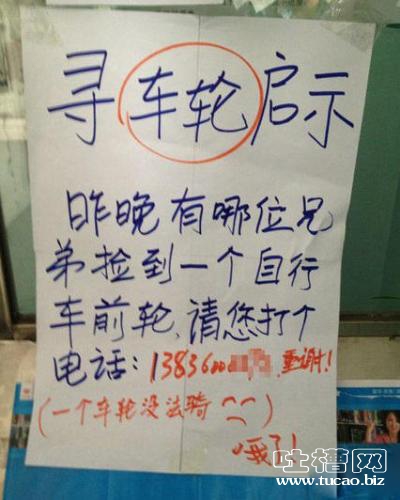 寻车轮启示
昨晚有哪位兄
弟捡到一个自行
车前轮,请您打个
电话:13836 重谢!
(一个车轮没法骑
哦了!
吐槽网
www.tucao.biz